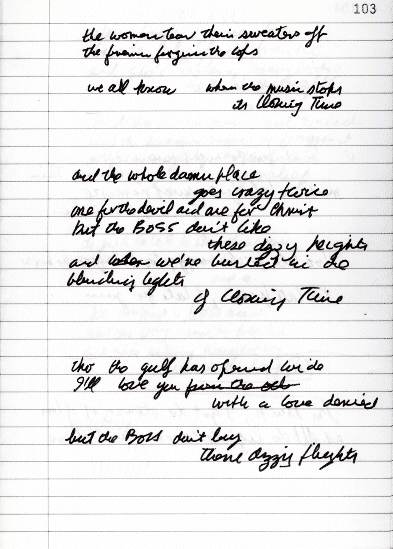 103
the women tear their sweaters off
the
we all know when the music stops
its Closing Time
and the whole damn place
goes crazy twice
one for the devil and one for Christ
but the Boss don't like
these dizzy heights
and we're busted in the
blinding lights
of Closing Time
tho the gulf has opened wide
I'll love you from the
with a love denied
but the Boss don't buy
these dizzy